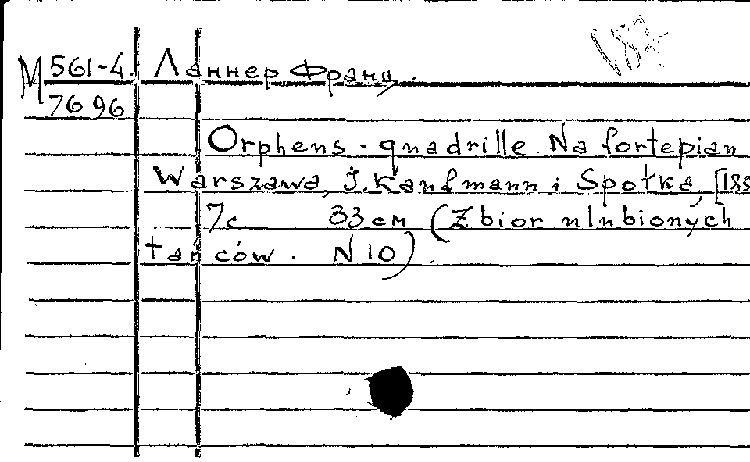 М 561-4 Ланнер Франц.
7696
Orphens - quadrille. Na fortepian
Warszawa, J. Kaufmann i Spotka, [188
7с 33 см (Zbior ulubionych
tańców. N 10)